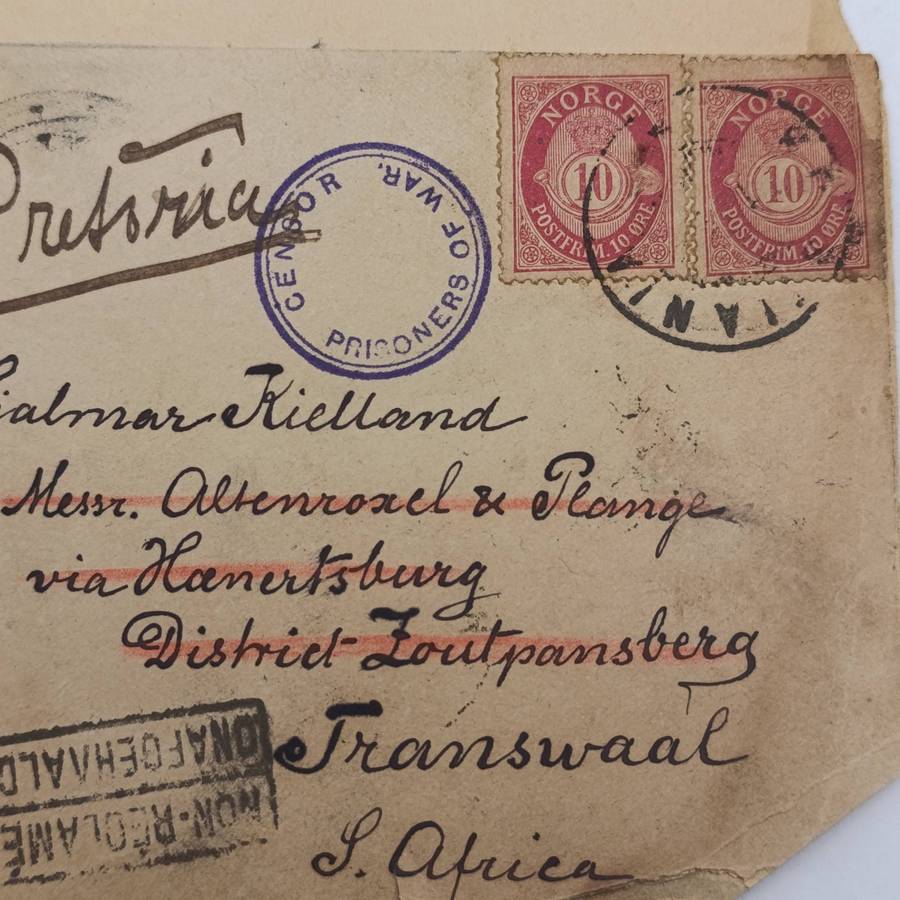 NORGE
10
POSTFRIM. 10 ØRE
NORGE
10
POSTFRIM. 10 ØRE
IANIA
Pretoria
CENSOR PRISONERS OF WAR.
jalmar Kielland
Messr. Altenroxel & Plange
via Hænertsburg
District Zoutpansberg
Transwaal
S. Africa
NON-RÉCLAMÉ
ONAFGEHAALD